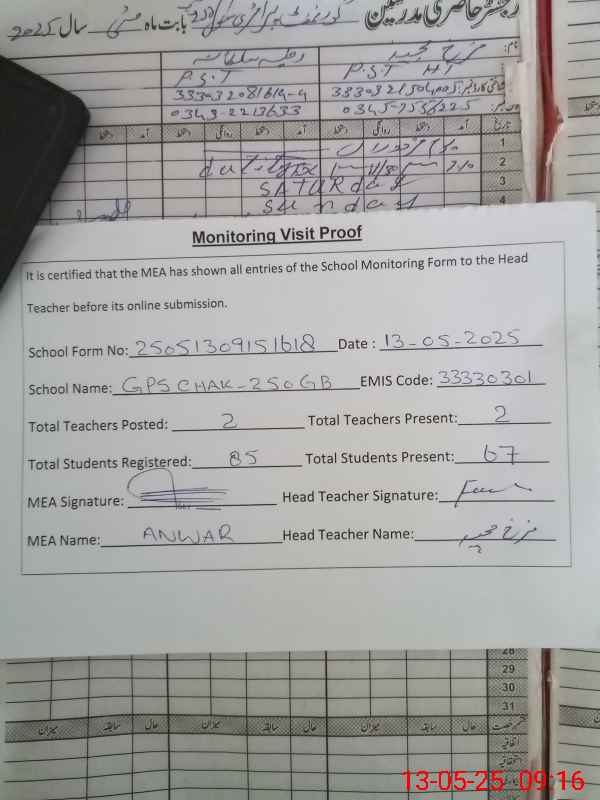 رجسٹر حاضری مدرسین گورنمنٹ پرائمری سکول 250 بابت ماہ مئی سال 2025
نام:
P.S.T HT
P.S.T
0345-7538225
0343-2213633
تاریخ آمد دستخط روانگی دستخط آمد دستخط روانگی دستخط آمد دستخط
1
2
3 SATURday
4 Sunday
Monitoring Visit Proof
It is certified that the MEA has shown all entries of the School Monitoring Form to the Head
Teacher before its online submission.
School Form No: 25051309151618 Date : 13-05-2025
School Name: GPS CHAK-250GB EMIS Code: 33330301
Total Teachers Posted: 2 Total Teachers Present: 2
Total Students Registered: 85 Total Students Present: 67
MEA Signature: Head Teacher Signature:
MEA Name: ANWAR Head Teacher Name:
28
29
30
31
حال سابقہ میزان حال سابقہ میزان حال سابقہ میزان
اتفاقیہ
13-05-25 09:16